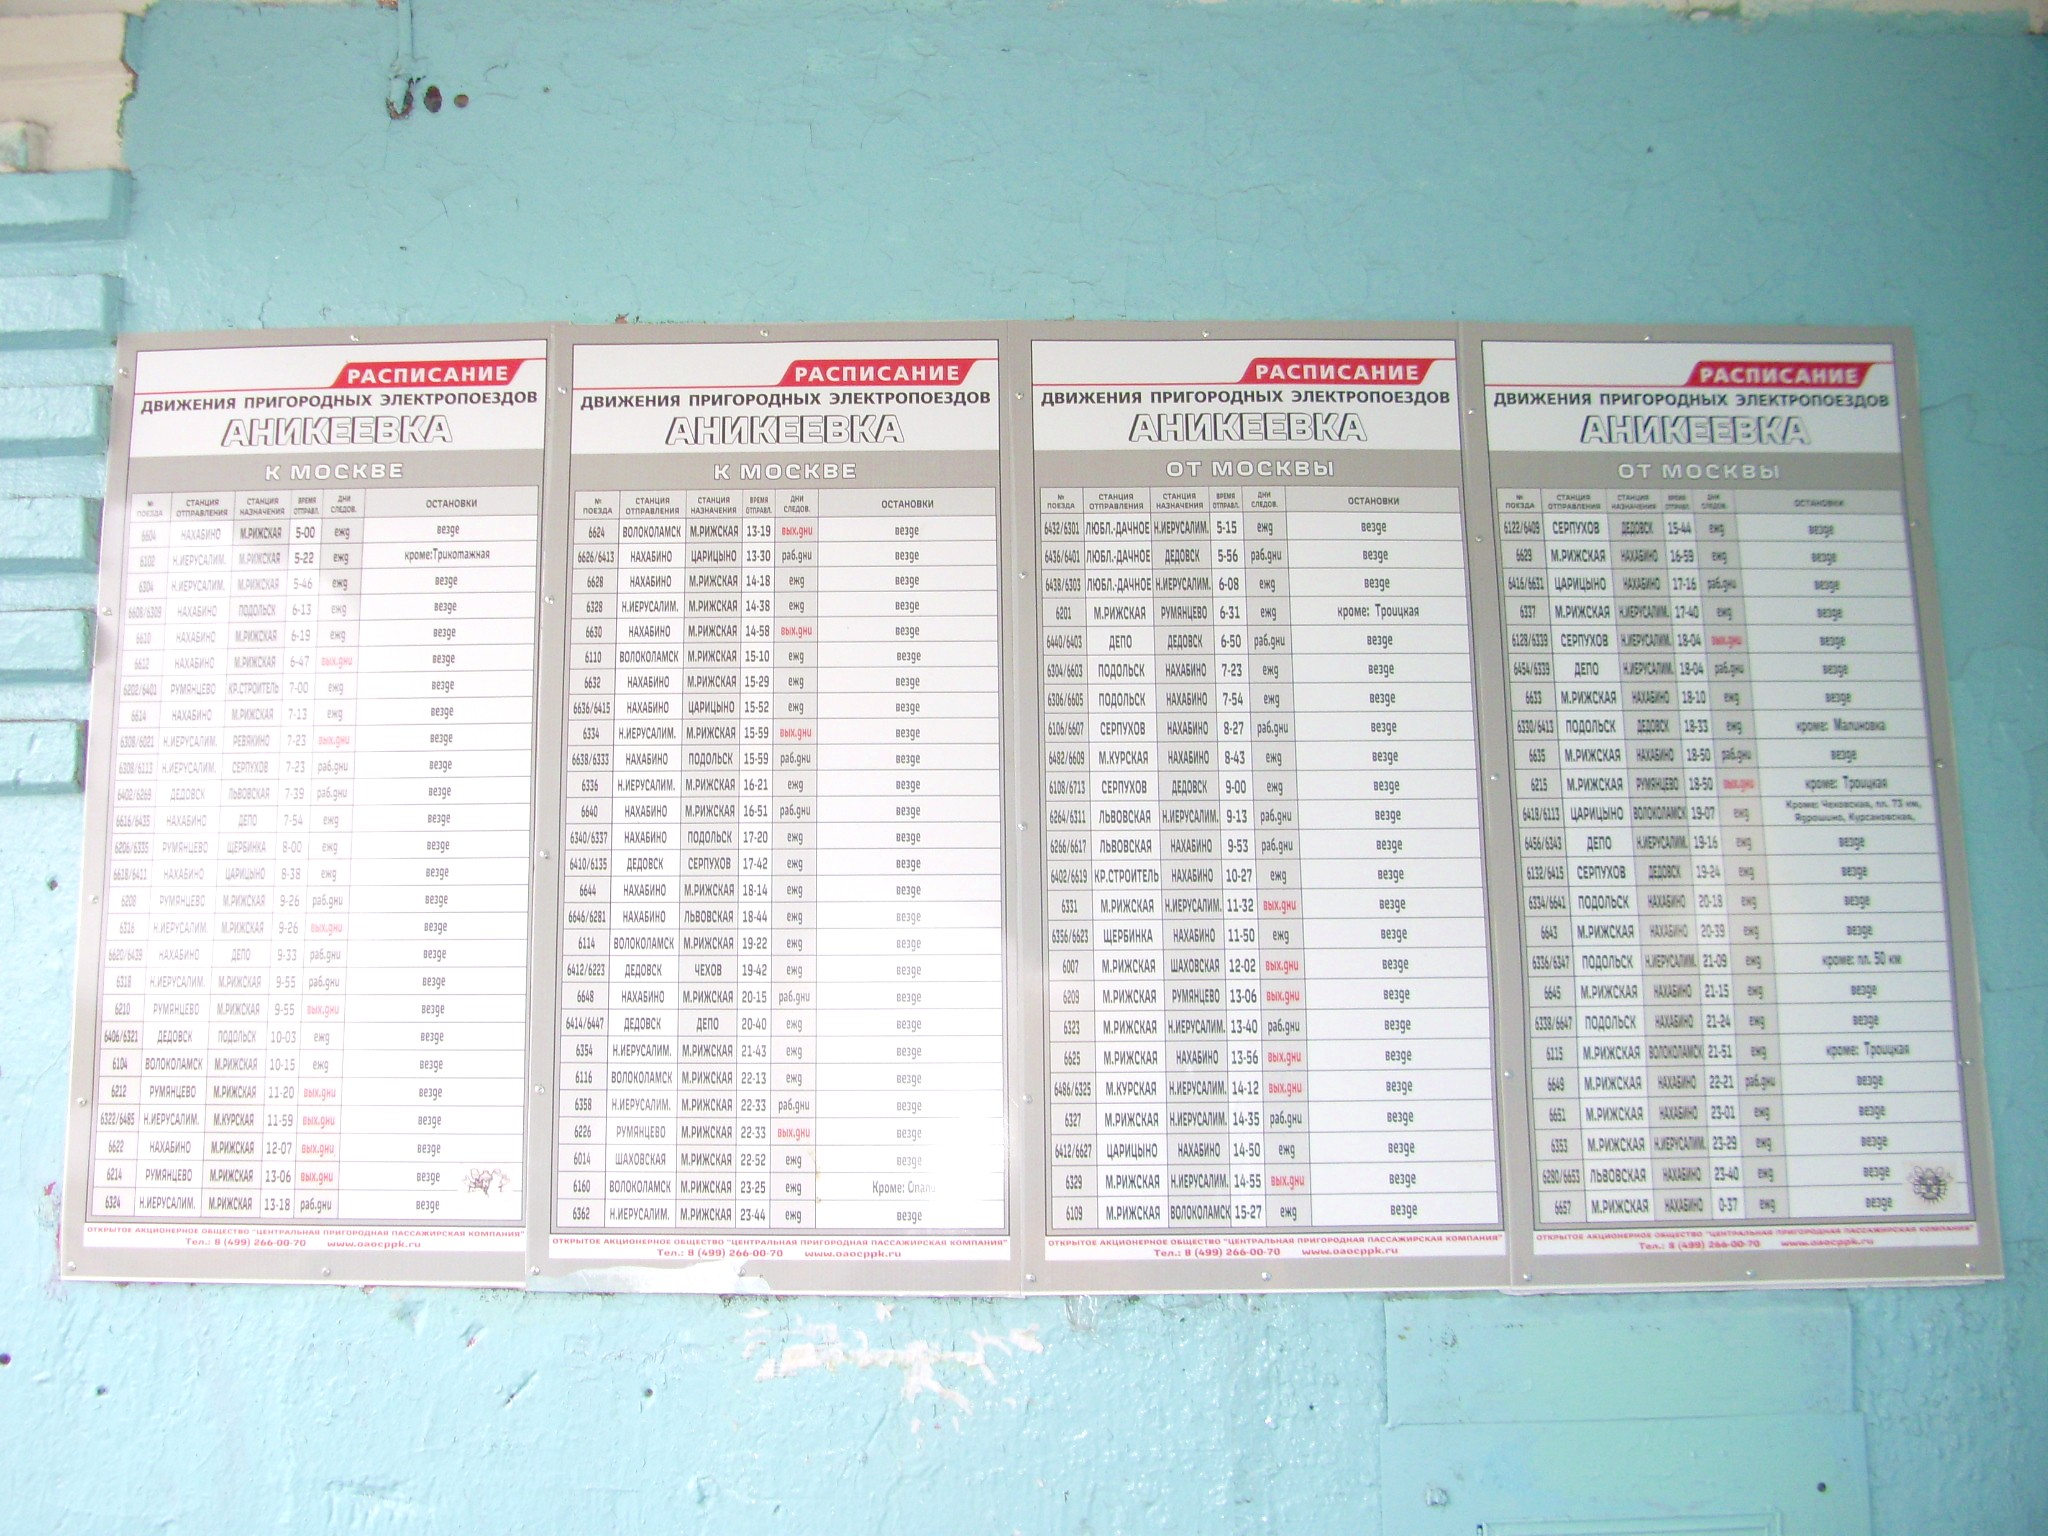 РАСПИСАНИЕ
ДВИЖЕНИЯ ПРИГОРОДНЫХ ЭЛЕКТРОПОЕЗДОВ
АНИКЕЕВКА
К МОСКВЕ
№ ПОЕЗДА СТАНЦИЯ ОТПРАВЛЕНИЯ СТАНЦИЯ НАЗНАЧЕНИЯ ВРЕМЯ ОТПРАВЛ. ДНИ СЛЕДОВ. ОСТАНОВКИ
6604 НАХАБИНО М.РИЖСКАЯ 5-00 ежд везде
6102 Н.ИЕРУСАЛИМ. М.РИЖСКАЯ 5-22 ежд кроме:Трикотажная
6304 Н.ИЕРУСАЛИМ. М.РИЖСКАЯ 5-46 ежд везде
6608/6309 НАХАБИНО ПОДОЛЬСК 6-13 ежд везде
6610 НАХАБИНО М.РИЖСКАЯ 6-19 ежд везде
6612 НАХАБИНО М.РИЖСКАЯ 6-47 вых.дни везде
6202/6401 РУМЯНЦЕВО КР.СТРОИТЕЛЬ 7-00 ежд везде
6614 НАХАБИНО М.РИЖСКАЯ 7-13 ежд везде
6308/6021 Н.ИЕРУСАЛИМ. РЕВЯКИНО 7-23 вых.дни везде
6308/6113 Н.ИЕРУСАЛИМ. СЕРПУХОВ 7-23 раб.дни везде
6402/6269 ДЕДОВСК ЛЬВОВСКАЯ 7-39 раб.дни везде
6616/6435 НАХАБИНО ДЕПО 7-54 ежд везде
6206/6335 РУМЯНЦЕВО ЩЕРБИНКА 8-00 ежд везде
6618/6411 НАХАБИНО ЦАРИЦЫНО 8-38 ежд везде
6208 РУМЯНЦЕВО М.РИЖСКАЯ 9-26 раб.дни везде
6316 Н.ИЕРУСАЛИМ. М.РИЖСКАЯ 9-26 вых.дни везде
6620/6439 НАХАБИНО ДЕПО 9-33 раб.дни везде
6318 Н.ИЕРУСАЛИМ. М.РИЖСКАЯ 9-55 раб.дни везде
6210 РУМЯНЦЕВО М.РИЖСКАЯ 9-55 вых.дни везде
6406/6321 ДЕДОВСК ПОДОЛЬСК 10-03 ежд везде
6104 ВОЛОКОЛАМСК М.РИЖСКАЯ 10-15 ежд везде
6212 РУМЯНЦЕВО М.РИЖСКАЯ 11-20 вых.дни везде
6322/6485 Н.ИЕРУСАЛИМ. М.КУРСКАЯ 11-59 вых.дни везде
6622 НАХАБИНО М.РИЖСКАЯ 12-07 вых.дни везде
6214 РУМЯНЦЕВО М.РИЖСКАЯ 13-06 вых.дни везде
6324 Н.ИЕРУСАЛИМ. М.РИЖСКАЯ 13-18 раб.дни везде
ОТКРЫТОЕ АКЦИОНЕРНОЕ ОБЩЕСТВО "ЦЕНТРАЛЬНАЯ ПРИГОРОДНАЯ ПАССАЖИРСКАЯ КОМПАНИЯ"
Тел.: 8 (499) 266-00-70 www.oaocppk.ru
РАСПИСАНИЕ
ДВИЖЕНИЯ ПРИГОРОДНЫХ ЭЛЕКТРОПОЕЗДОВ
АНИКЕЕВКА
К МОСКВЕ
№ ПОЕЗДА СТАНЦИЯ ОТПРАВЛЕНИЯ СТАНЦИЯ НАЗНАЧЕНИЯ ВРЕМЯ ОТПРАВЛ. ДНИ СЛЕДОВ. ОСТАНОВКИ
6624 ВОЛОКОЛАМСК М.РИЖСКАЯ 13-19 вых.дни везде
6626/6413 НАХАБИНО ЦАРИЦЫНО 13-30 раб.дни везде
6628 НАХАБИНО М.РИЖСКАЯ 14-18 ежд везде
6328 Н.ИЕРУСАЛИМ. М.РИЖСКАЯ 14-38 ежд везде
6630 НАХАБИНО М.РИЖСКАЯ 14-58 вых.дни везде
6110 ВОЛОКОЛАМСК М.РИЖСКАЯ 15-10 ежд везде
6632 НАХАБИНО М.РИЖСКАЯ 15-29 ежд везде
6636/6415 НАХАБИНО ЦАРИЦЫНО 15-52 ежд везде
6334 Н.ИЕРУСАЛИМ. М.РИЖСКАЯ 15-59 вых.дни везде
6638/6333 НАХАБИНО ПОДОЛЬСК 15-59 раб.дни везде
6336 Н.ИЕРУСАЛИМ. М.РИЖСКАЯ 16-21 ежд везде
6640 НАХАБИНО М.РИЖСКАЯ 16-51 раб.дни везде
6340/6337 НАХАБИНО ПОДОЛЬСК 17-20 ежд везде
6410/6135 ДЕДОВСК СЕРПУХОВ 17-42 ежд везде
6644 НАХАБИНО М.РИЖСКАЯ 18-14 ежд везде
6646/6281 НАХАБИНО ЛЬВОВСКАЯ 18-44 ежд везде
6114 ВОЛОКОЛАМСК М.РИЖСКАЯ 19-22 ежд везде
6412/6223 ДЕДОВСК ЧЕХОВ 19-42 ежд везде
6648 НАХАБИНО М.РИЖСКАЯ 20-15 раб.дни везде
6414/6447 ДЕДОВСК ДЕПО 20-40 ежд везде
6354 Н.ИЕРУСАЛИМ. М.РИЖСКАЯ 21-43 ежд везде
6116 ВОЛОКОЛАМСК М.РИЖСКАЯ 22-13 ежд везде
6358 Н.ИЕРУСАЛИМ. М.РИЖСКАЯ 22-33 раб.дни везде
6226 РУМЯНЦЕВО М.РИЖСКАЯ 22-33 вых.дни везде
6014 ШАХОВСКАЯ М.РИЖСКАЯ 22-52 ежд везде
6160 ВОЛОКОЛАМСК М.РИЖСКАЯ 23-25 ежд Кроме:
6362 Н.ИЕРУСАЛИМ. М.РИЖСКАЯ 23-44 ежд везде
ОТКРЫТОЕ АКЦИОНЕРНОЕ ОБЩЕСТВО "ЦЕНТРАЛЬНАЯ ПРИГОРОДНАЯ ПАССАЖИРСКАЯ КОМПАНИЯ"
Тел.: 8 (499) 266-00-70 www.oaocppk.ru
РАСПИСАНИЕ
ДВИЖЕНИЯ ПРИГОРОДНЫХ ЭЛЕКТРОПОЕЗДОВ
АНИКЕЕВКА
ОТ МОСКВЫ
№ ПОЕЗДА СТАНЦИЯ ОТПРАВЛЕНИЯ СТАНЦИЯ НАЗНАЧЕНИЯ ВРЕМЯ ОТПРАВЛ. ДНИ СЛЕДОВ. ОСТАНОВКИ
6432/6301 ЛЮБЛ.-ДАЧНОЕ Н.ИЕРУСАЛИМ. 5-15 ежд везде
6436/6401 ЛЮБЛ.-ДАЧНОЕ ДЕДОВСК 5-56 раб.дни везде
6438/6303 ЛЮБЛ.-ДАЧНОЕ Н.ИЕРУСАЛИМ. 6-08 ежд везде
6201 М.РИЖСКАЯ РУМЯНЦЕВО 6-31 ежд кроме: Троицкая
6440/6403 ДЕПО ДЕДОВСК 6-50 раб.дни везде
6304/6603 ПОДОЛЬСК НАХАБИНО 7-23 ежд везде
6306/6605 ПОДОЛЬСК НАХАБИНО 7-54 ежд везде
6106/6607 СЕРПУХОВ НАХАБИНО 8-27 раб.дни везде
6482/6609 М.КУРСКАЯ НАХАБИНО 8-43 ежд везде
6108/6713 СЕРПУХОВ ДЕДОВСК 9-00 ежд везде
6264/6311 ЛЬВОВСКАЯ Н.ИЕРУСАЛИМ. 9-13 раб.дни везде
6266/6617 ЛЬВОВСКАЯ НАХАБИНО 9-53 раб.дни везде
6402/6619 КР.СТРОИТЕЛЬ НАХАБИНО 10-27 ежд везде
6331 М.РИЖСКАЯ Н.ИЕРУСАЛИМ. 11-32 вых.дни везде
6356/6623 ЩЕРБИНКА НАХАБИНО 11-50 ежд везде
6007 М.РИЖСКАЯ ШАХОВСКАЯ 12-02 вых.дни везде
6209 М.РИЖСКАЯ РУМЯНЦЕВО 13-06 вых.дни везде
6323 М.РИЖСКАЯ Н.ИЕРУСАЛИМ. 13-40 раб.дни везде
6625 М.РИЖСКАЯ НАХАБИНО 13-56 вых.дни везде
6486/6325 М.КУРСКАЯ Н.ИЕРУСАЛИМ. 14-12 вых.дни везде
6327 М.РИЖСКАЯ Н.ИЕРУСАЛИМ. 14-35 раб.дни везде
6412/6627 ЦАРИЦЫНО НАХАБИНО 14-50 ежд везде
6329 М.РИЖСКАЯ Н.ИЕРУСАЛИМ. 14-55 вых.дни везде
6109 М.РИЖСКАЯ ВОЛОКОЛАМСК 15-27 ежд везде
ОТКРЫТОЕ АКЦИОНЕРНОЕ ОБЩЕСТВО "ЦЕНТРАЛЬНАЯ ПРИГОРОДНАЯ ПАССАЖИРСКАЯ КОМПАНИЯ"
Тел.: 8 (499) 266-00-70 www.oaocppk.ru
РАСПИСАНИЕ
ДВИЖЕНИЯ ПРИГОРОДНЫХ ЭЛЕКТРОПОЕЗДОВ
АНИКЕЕВКА
ОТ МОСКВЫ
№ ПОЕЗДА СТАНЦИЯ ОТПРАВЛЕНИЯ СТАНЦИЯ НАЗНАЧЕНИЯ ВРЕМЯ ОТПРАВЛ. ДНИ СЛЕДОВ. ОСТАНОВКИ
6122/6409 СЕРПУХОВ ДЕДОВСК 15-44 ежд везде
6629 М.РИЖСКАЯ НАХАБИНО 16-59 ежд везде
6416/6631 ЦАРИЦЫНО НАХАБИНО 17-16 раб.дни везде
6337 М.РИЖСКАЯ Н.ИЕРУСАЛИМ. 17-40 ежд везде
6128/6339 СЕРПУХОВ Н.ИЕРУСАЛИМ. 18-04 вых.дни везде
6454/6339 ДЕПО Н.ИЕРУСАЛИМ. 18-04 раб.дни везде
6633 М.РИЖСКАЯ НАХАБИНО 18-10 ежд везде
6330/6413 ПОДОЛЬСК ДЕДОВСК 18-33 ежд кроме: Малиновка
6635 М.РИЖСКАЯ НАХАБИНО 18-50 раб.дни везде
6215 М.РИЖСКАЯ РУМЯНЦЕВО 18-50 вых.дни кроме: Троицкая
6418/6113 ЦАРИЦЫНО ВОЛОКОЛАМСК 19-07 ежд Кроме: Чеховская, пл. 73 км,
Ядрошино, Курсаковская,
6456/6343 ДЕПО Н.ИЕРУСАЛИМ. 19-16 ежд везде
6132/6415 СЕРПУХОВ ДЕДОВСК 19-24 ежд везде
6334/6641 ПОДОЛЬСК НАХАБИНО 20-18 ежд везде
6643 М.РИЖСКАЯ НАХАБИНО 20-39 ежд везде
6336/6347 ПОДОЛЬСК Н.ИЕРУСАЛИМ. 21-09 ежд кроме: пл. 50 км
6645 М.РИЖСКАЯ НАХАБИНО 21-15 ежд везде
6338/6647 ПОДОЛЬСК НАХАБИНО 21-24 ежд везде
6115 М.РИЖСКАЯ ВОЛОКОЛАМСК 21-51 ежд кроме: Троицкая
6649 М.РИЖСКАЯ НАХАБИНО 22-21 раб.дни везде
6651 М.РИЖСКАЯ НАХАБИНО 23-01 ежд везде
6353 М.РИЖСКАЯ Н.ИЕРУСАЛИМ. 23-29 ежд везде
6290/6653 ЛЬВОВСКАЯ НАХАБИНО 23-40 ежд везде
6657 М.РИЖСКАЯ НАХАБИНО 0-37 ежд везде
ОТКРЫТОЕ АКЦИОНЕРНОЕ ОБЩЕСТВО "ЦЕНТРАЛЬНАЯ ПРИГОРОДНАЯ ПАССАЖИРСКАЯ КОМПАНИЯ"
Тел.: 8 (499) 266-00-70 www.oaocppk.ru